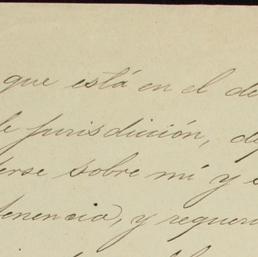 que está en el de
jurisdicción, de
erse sobre mí y
tenencia, y requer